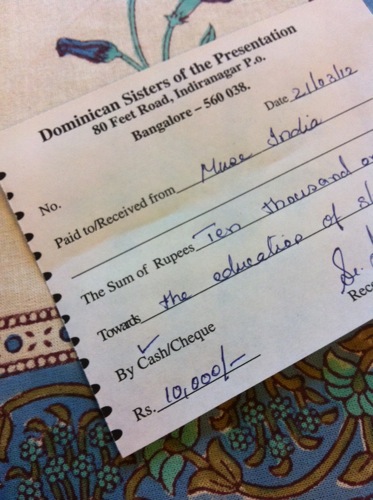 Dominican Sisters of the Presentation
80 Feet Road, Indiranagar P.o.
Bangalore – 560 038.
Date 21/03/12
No.
Paid to/Received from Muse India
The Sum of Rupees Ten thousand
Towards the education of
By Cash/Cheque
Rs. 10,000/-